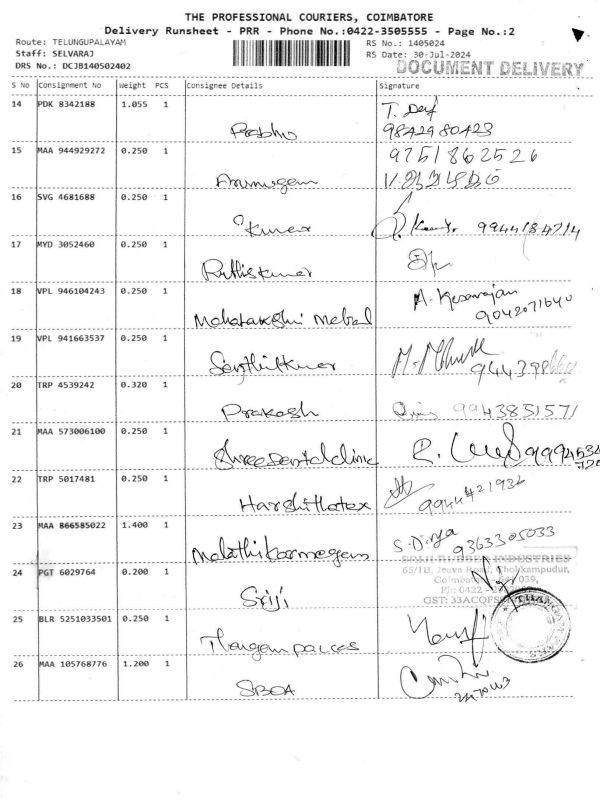 THE PROFESSIONAL COURIERS, COIMBATORE
Delivery Runsheet - PRR - Phone No.:0422-3505555 - Page No.:2
Route: TELUNGUPALAYAM RS No.: 1405024
Staff: SELVARAJ RS Date: 30-Jul-2024
DRS No.: DCJB140502402 DOCUMENT DELIVERY
S No Consignment No Weight PCS Consignee Details Signature
14 PDK 8342188 1.055 1 T. Devi
Prabhu 9842980423
15 MAA 944929272 0.250 1 9751862526
Arumugam
16 SVG 4681688 0.250 1
Kumar 9944184714
17 MYD 3052460 0.250 1
Ruthiskumar
18 VPL 946104243 0.250 1 A. Kesavarajan
Mahalakshmi Metal 9042071640
19 VPL 941663537 0.250 1
Senthilkumar 944398
20 TRP 4539242 0.320 1
Prakash 9943851571
21 MAA 573006100 0.250 1
Shree Dental clinic 9994534
22 TRP 5017481 0.250 1
Harshitlatex 9944421936
23 MAA 866585022 1.400 1 S. Divya
Malathikarmegam 9363305033
SRIJI RUBBER INDUSTRIES
24 PGT 6029764 0.200 1 65/1B, Jeeva Road, Cholkampudur,
Coimbatore 039,
Sriji Ph: 0422
GST: 33ACQFS
25 BLR 5251033501 0.250 1
Thangam palces
26 MAA 105768776 1.200 1
SBOA